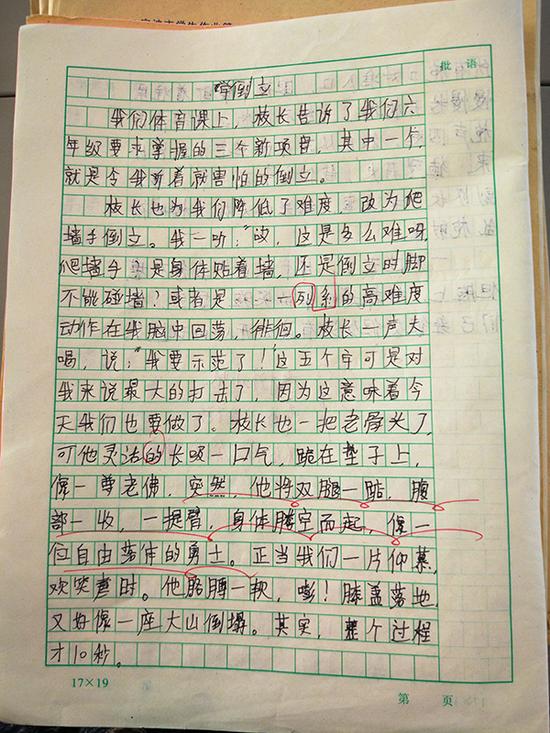 批 语
学倒立
我们体育课上，校长告诉了我们六
年级要求掌握的三个新项目，其中一个
就是令我听着就害怕的倒立。
校长也为我们降低了难度，改为爬
墙手倒立。我一听，“哎，这是多么难呀，
爬墙手，是身体贴着墙，还是倒立时脚
不能碰墙？或者是……”一系列的高难度
动作在我脑中回荡，徘徊。校长一声大
喝，说：“我要示范了！”这五个字可是对
我来说最大的打击了，因为这意味着今
天我们也要做了。校长也一把老骨头了，
可他灵活的长吸一口气，跪在垫子上，
像一尊老佛，突然，他将双腿一踮，腹
部一收，一提臂，身体腾空而起，像一
位自由落体的勇士。正当我们一片仰慕，
欢笑着时。他胳膊一软，嘭！膝盖落地，
又好像一座大山倒塌。其实，整个过程
才10秒。
17×19
第 页